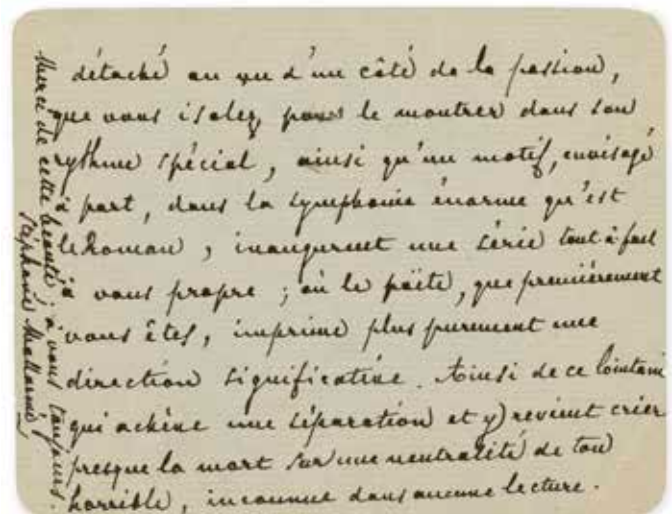 détaché au vu d'un côté de la passion,
que vous isolez, pour le montrer dans son
rythme spécial, ainsi qu'un motif, envisagé
à part, dans la symphonie énorme qu'est
le Roman, inaugurent une série tout à fait
à vous propre ; où le poëte, que premièrement
vous êtes, imprime plus purement une
direction significative. Ainsi de ce lointain
qui achève une séparation et y revient crier
presque la mort sur une neutralité de ton
horrible, inconnue dans aucune lecture.
Merci de cette beauté ; à vous toujours.
Stéphane Mallarmé